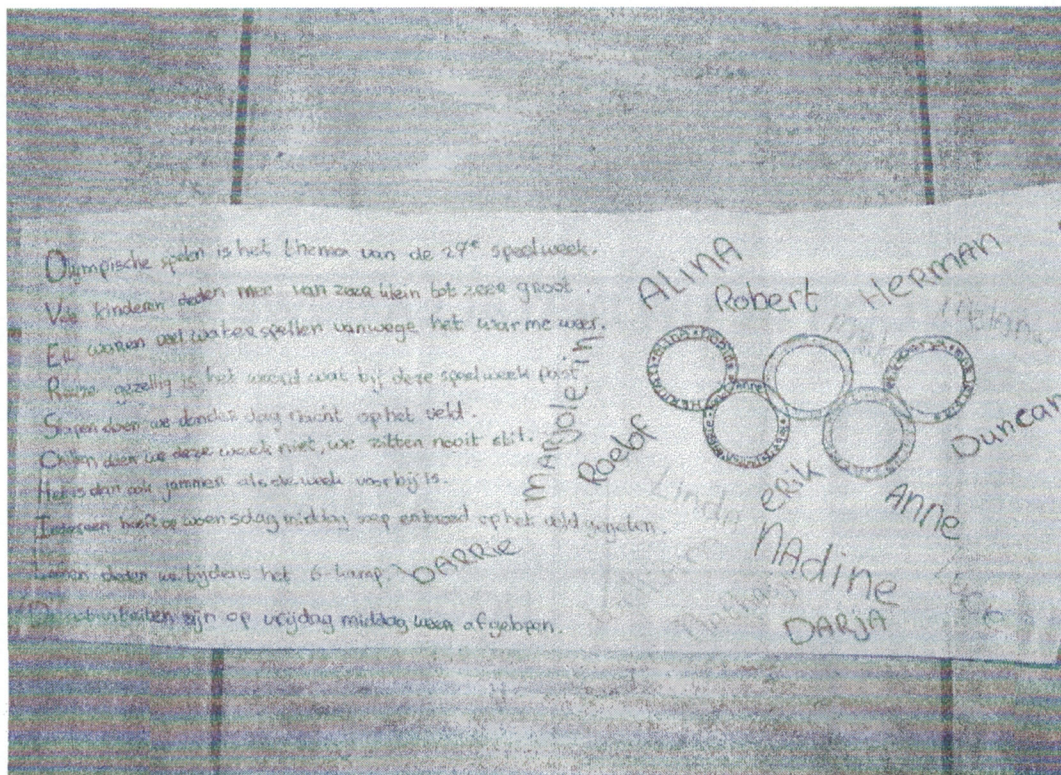 Olympische spelen is het thema van de 27e speelweek.
Vele kinderen deden mee van zeer klein tot zeer groot.
Er waren veel waterspellen vanwege het warme weer.
gezellig is het woord wat bij deze speelweek past.
Slapen doen we donderdag nacht op het veld.
Chillen doen we deze week niet, we zitten nooit stil.
Het is dan ook jammer als de week voorbij is.
Iedereen heeft op woensdag middag soep en brood op het veld gegeten.
deden we tijdens het 6-kamp.
zijn op vrijdag middag weer afgelopen.
ALINA
Robert
HERMAN
Melanie
MARJolein
Roelof
Duncan
Linda
eRik
ANNE
DARRie
NAdine
Luck
DARJA